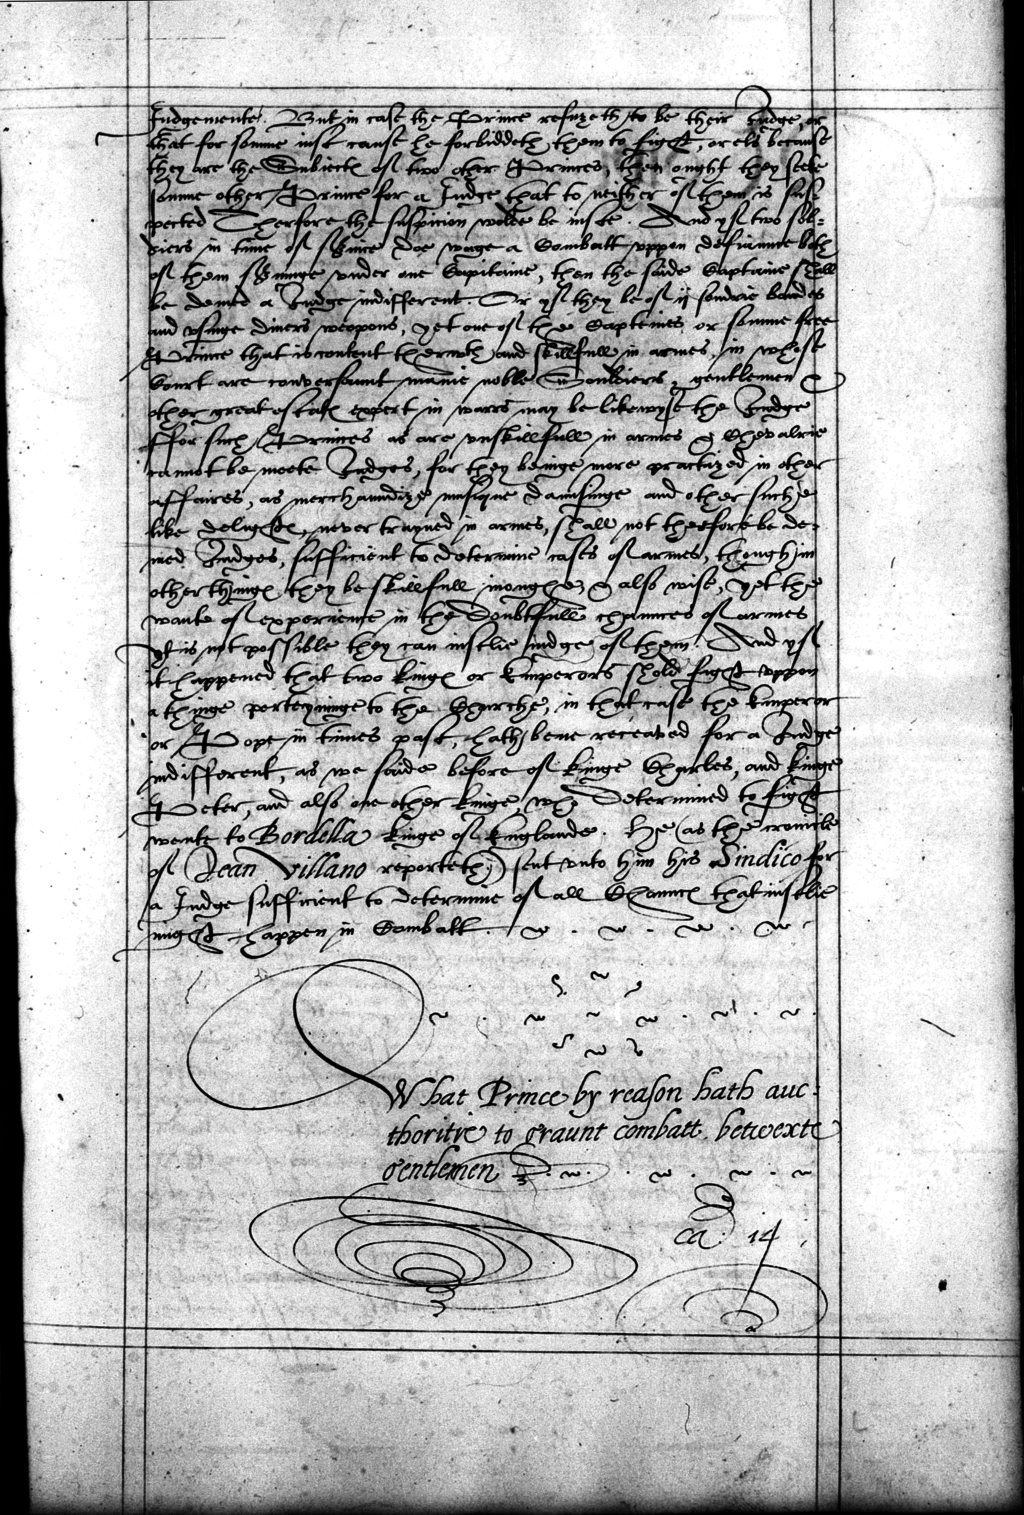 Judgemente. But in case the Prince refuzeth to be their Judge, or
that for somme iust cause he forbiddeth them to fight, or els because
they are the Subiectes of two other Princes, then ought they seeke
somme other Prince for a Judge that to neither of them is sus-
pected Therfore the suspicion wolde be iuste. And yf two sol-
diers in time of servinge doe wage a Combatt uppon defiaunce both
of them servinge under one Capitaine, then the saide Captaine shall
be demed a Judge indifferent. Or yf they be of ij sondrie bandes
and usinge divers weopons, yet one of the Capteines or somme free
Prince that is content therwth and skillfull in armes, in whose
Court are conversaunt manie noble Souldiers, gentlemen &
other great estates expert in warrs may be likewyse the Judge
ffor such Princes as are unskillfull in armes & Chevalrie
cannot be meete Judges, for they beinge more practized in other
affaires, as merchaundize musique daunsinge and other suche
like delightes, never trayned in armes, shall not therfore be de-
med Judges, sufficient to determine cases of armes, though in
other thinges they be skillfull inoughe, & also wise, yet the
wante of experience in the doubtfull chaunces of armes
yt is not possible they can iustlie iudge of them. And yf
it happened that two kinges or Emperors shold fight uppon
a thinge perteyninge to the Churche, in that case the Emperor
or Pope in times past, hath bene receaved for a Judge
indifferent, as we saide before of kinge Charles, and kinge
Peter, and also one other kinge, who determined to fight
wente to Bordella kinge of Englande. He (as the cronicle
of Jean Villano reporteth) sent unto him his Sindico for
a Judge sufficient to determine of all Chaunces that iustlie
might happen in Combatt.
What Prince by reason hath auc-
thoritie to graunt combatt betwexte
gentlemen
ca 14